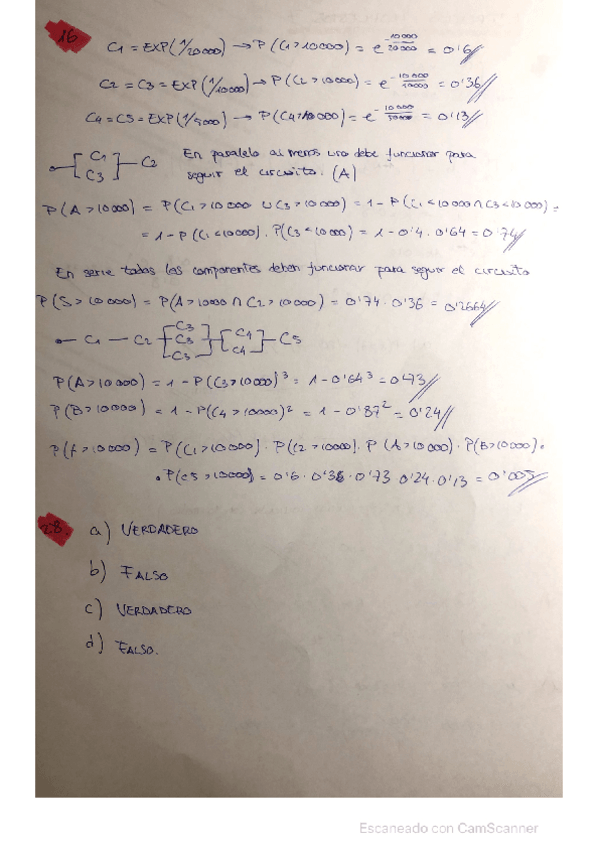 16
C1 = EXP(1/20000) → P(C1>10000) = e^-10000/20000 = 0'6//
C2 = C3 = EXP(1/10000) → P(C2>10000) = e^-10000/10000 = 0'36//
C4 = C5 = EXP(1/5000) → P(C4>10000) = e^-10000/5000 = 0'13//
C1
C3
C2
En paralelo al menos uno debe funcionar para
seguir el circuito. (A)
P(A>10000) = P(C1>10000 ∪ C3>10000) = 1 - P(C1<10000 ∩ C3<10000) =
= 1 - P(C1<10000) · P(C3<10000) = 1 - 0'4 · 0'64 = 0'74//
En serie todas los componentes deben funcionar para seguir el circuito
P(S>10000) = P(A>1000 ∩ C2>10000) = 0'74 · 0'36 = 0'2664//
C1 — C2
C3
C3
C3
C4
C4
C5
P(A>10000) = 1 - P(C3>10000)^3 = 1 - 0'64^3 = 0'73//
P(B>10000) = 1 - P(C4>10000)^2 = 1 - 0'87^2 = 0'24//
P(f>10000) = P(C1>10000) · P(C2>10000) · P(A>10000) · P(B>10000) ·
· P(C5>10000) = 0'6 · 0'36 · 0'73 0'24 · 0'13 = 0'005//
28.
a) VERDADERO
b) FALSO
c) VERDADERO
d) FALSO.
Escaneado con CamScanner